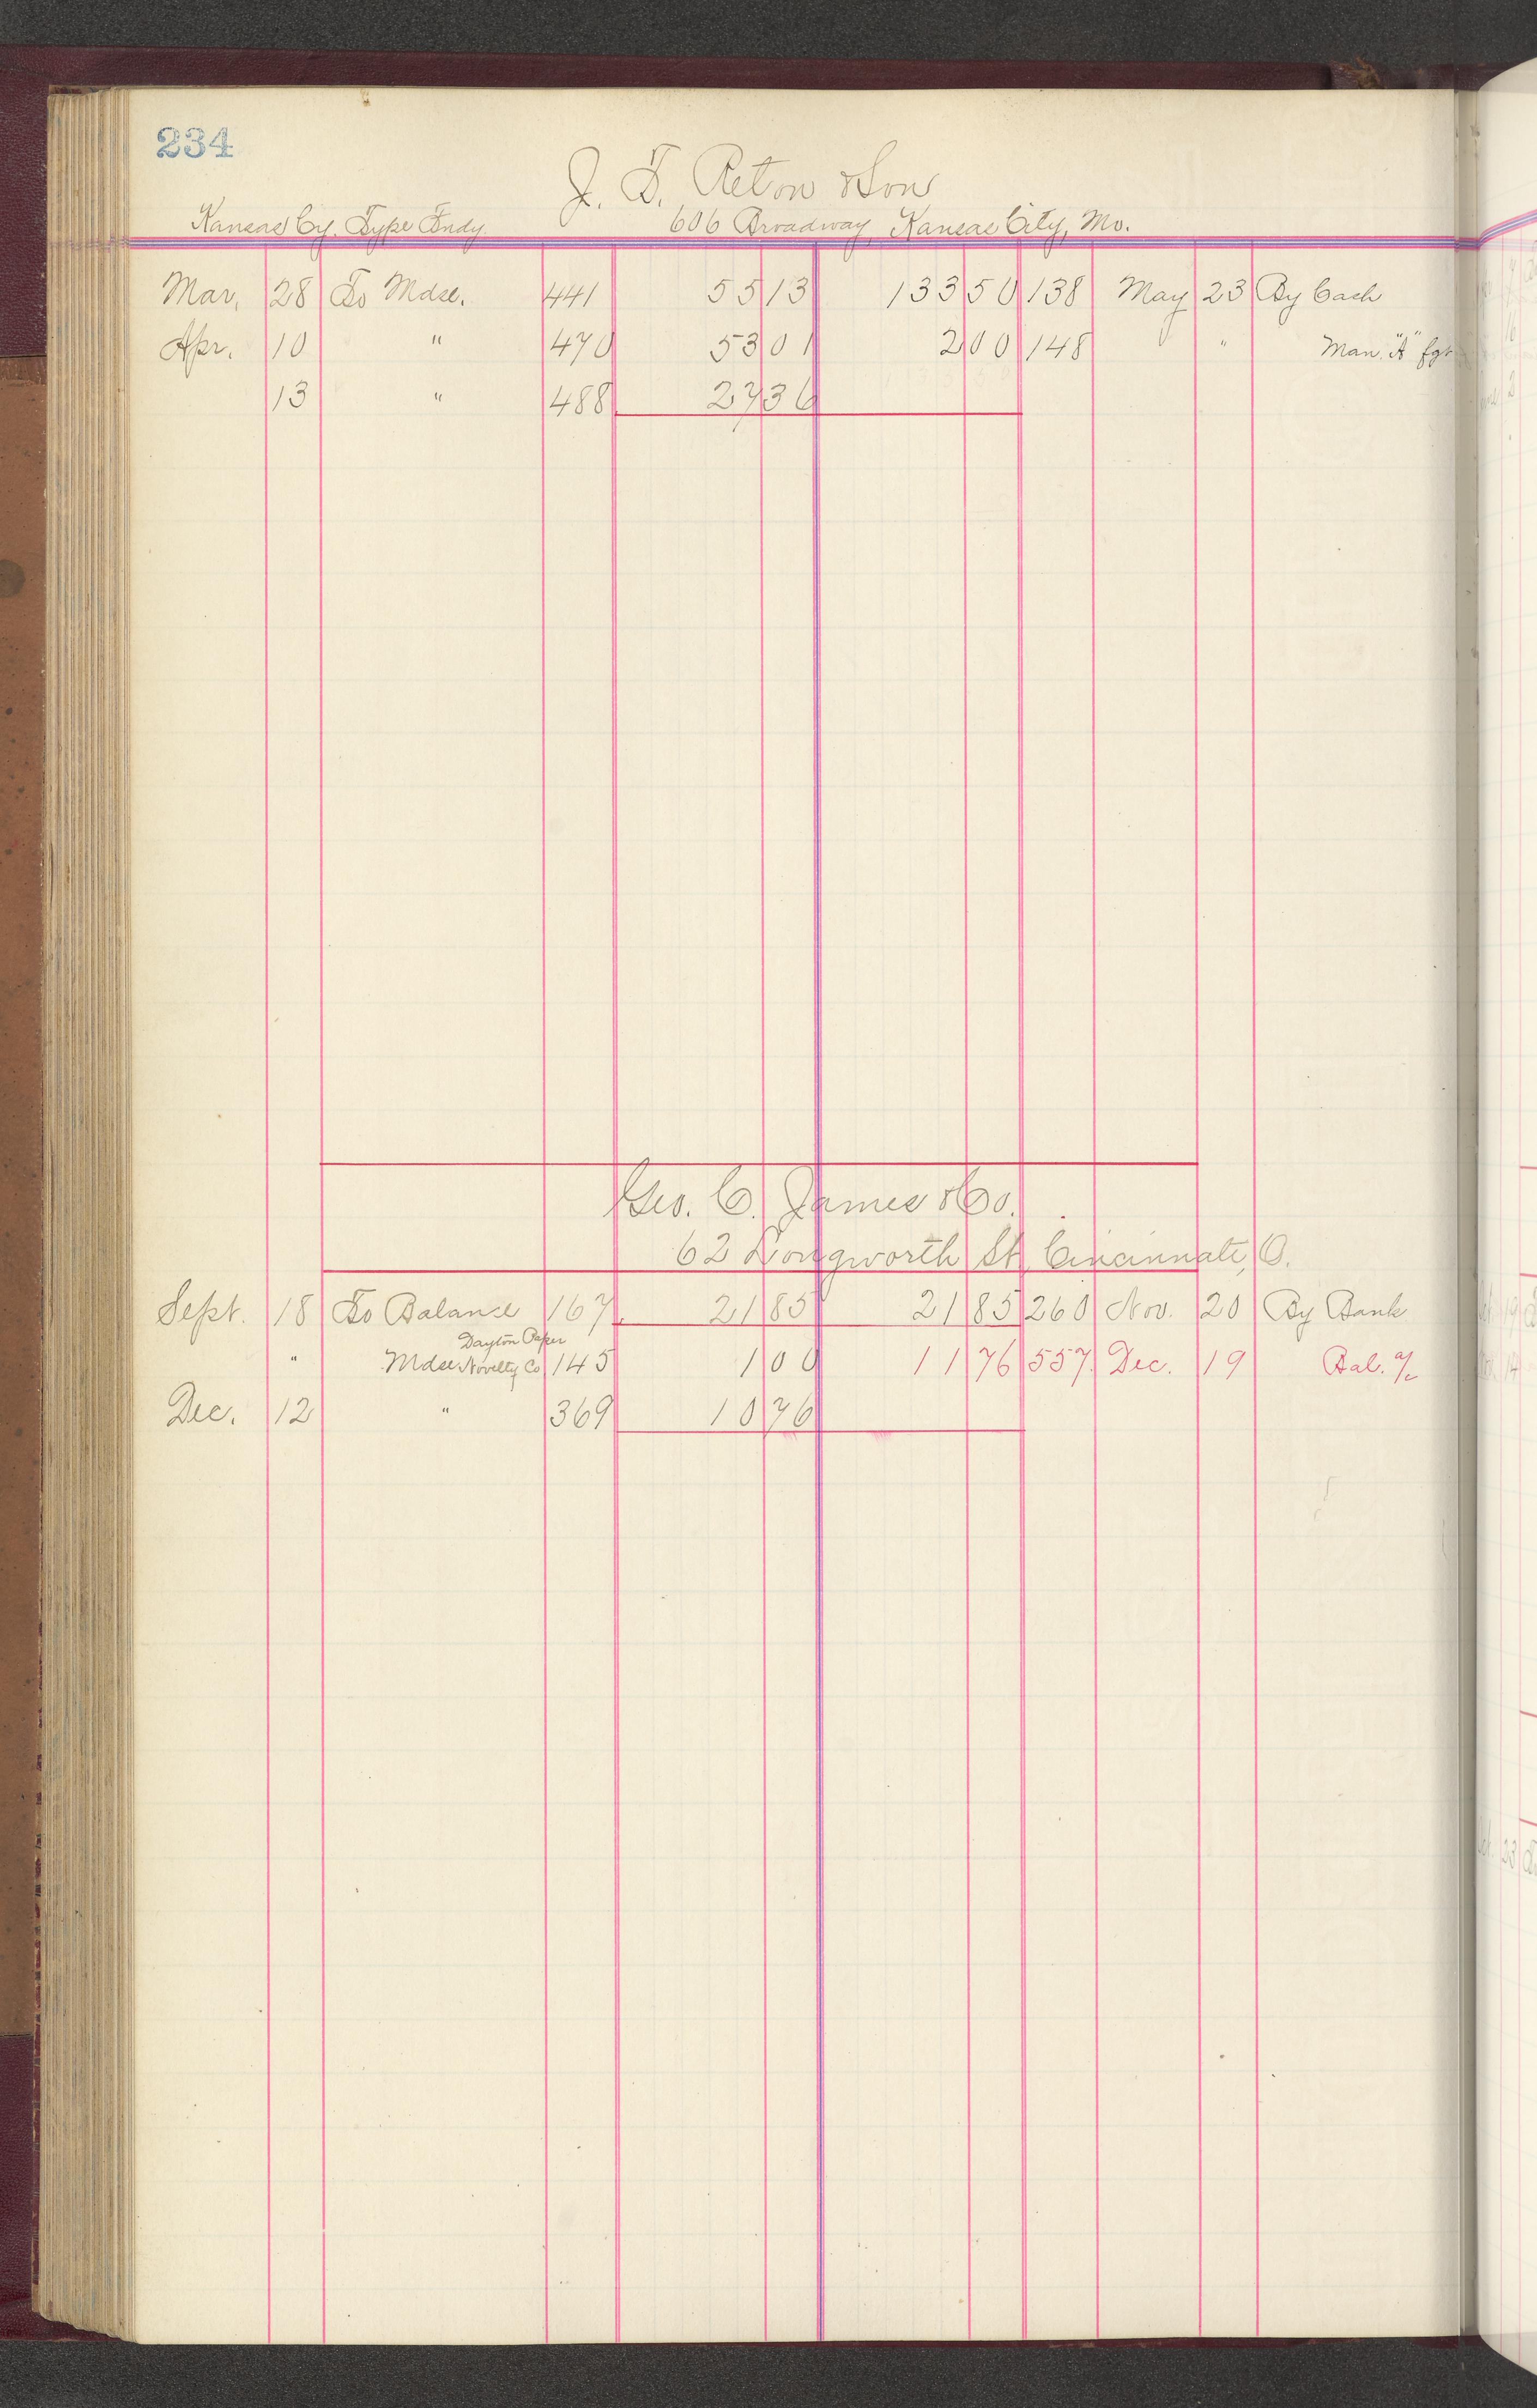 234
J. T. Reton & Son
Kansas Cy. Type Fndy 606 Broadway, Kansas City, Mo.
Mar. 28 To Mdse. 441 55 13 133 50 138 May 23 By Cash
Apr. 10 " 470 53 01 2 00 148 " Man. "A" fgt
13 " 488 27 36
Geo. C. James & Co.
62 Longworth St. Cincinnati, O.
Sept. 18 To Balance 167 21 85 21 85 260 Nov. 20 By Bank
Dayton Paper
" Mdse. Novelty Co 145 1 00 11 76 557 Dec. 19 Bal. a/c
Dec. 12 " 369 10 76